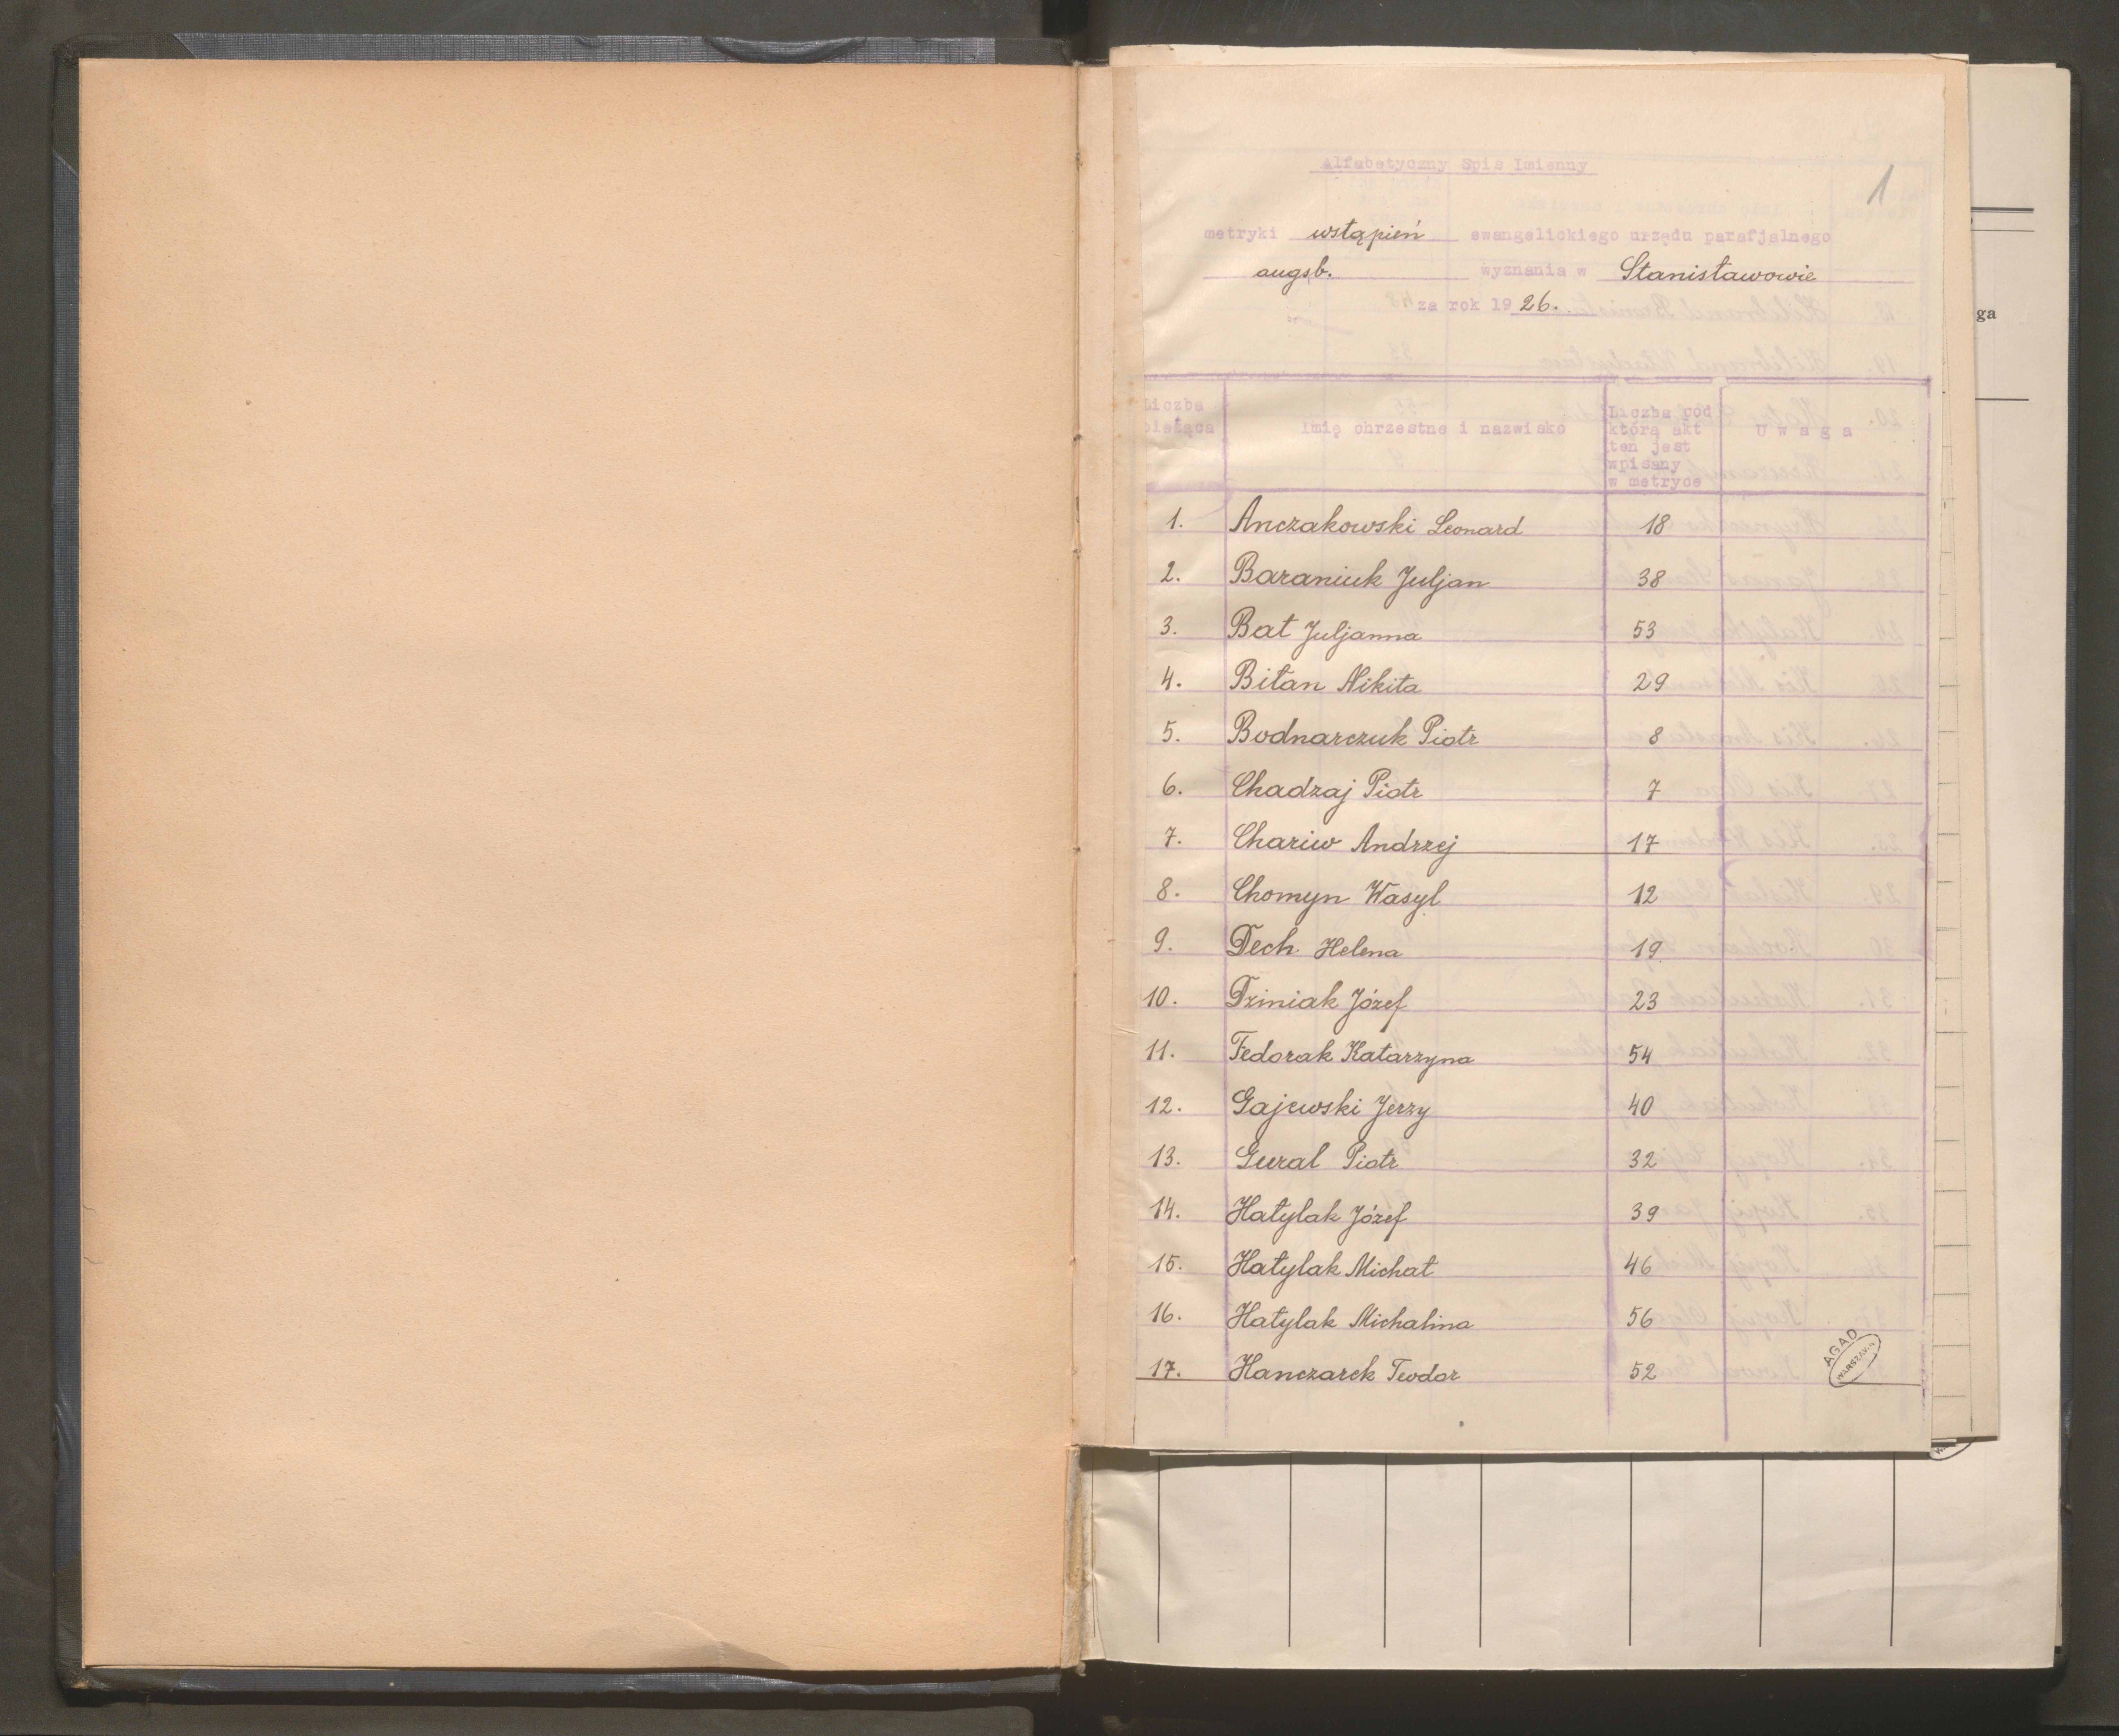 1
Alfabetyczny Spis Imienny
metryki wstąpień ewangelickiego urzędu parafjalnego
augsb. wyznania w Stanisławowie
za rok 1926.
Liczba bieżąca | Imię chrzestne i nazwisko | Liczba pod którą akt ten jest wpisany w metryce | Uwaga
1. Anczakowski Leonard 18
2. Baraniuk Juljan 38
3. Bat Juljanna 53
4. Bitan Nikita 29
5. Bodnarczuk Piotr 8
6. Chadzaj Piotr 7
7. Chariw Andrzej 17
8. Chomyn Wasyl 12
9. Dech Helena 19
10. Dziniak Józef 23
11. Fedorak Katarzyna 54
12. Gajewski Jerzy 40
13. Gural Piotr 32
14. Hatylak Józef 39
15. Hatylak Michał 46
16. Hatylak Michalina 56
17. Hanczarek Teodor 52
AGAD
WARSZAWA
ga